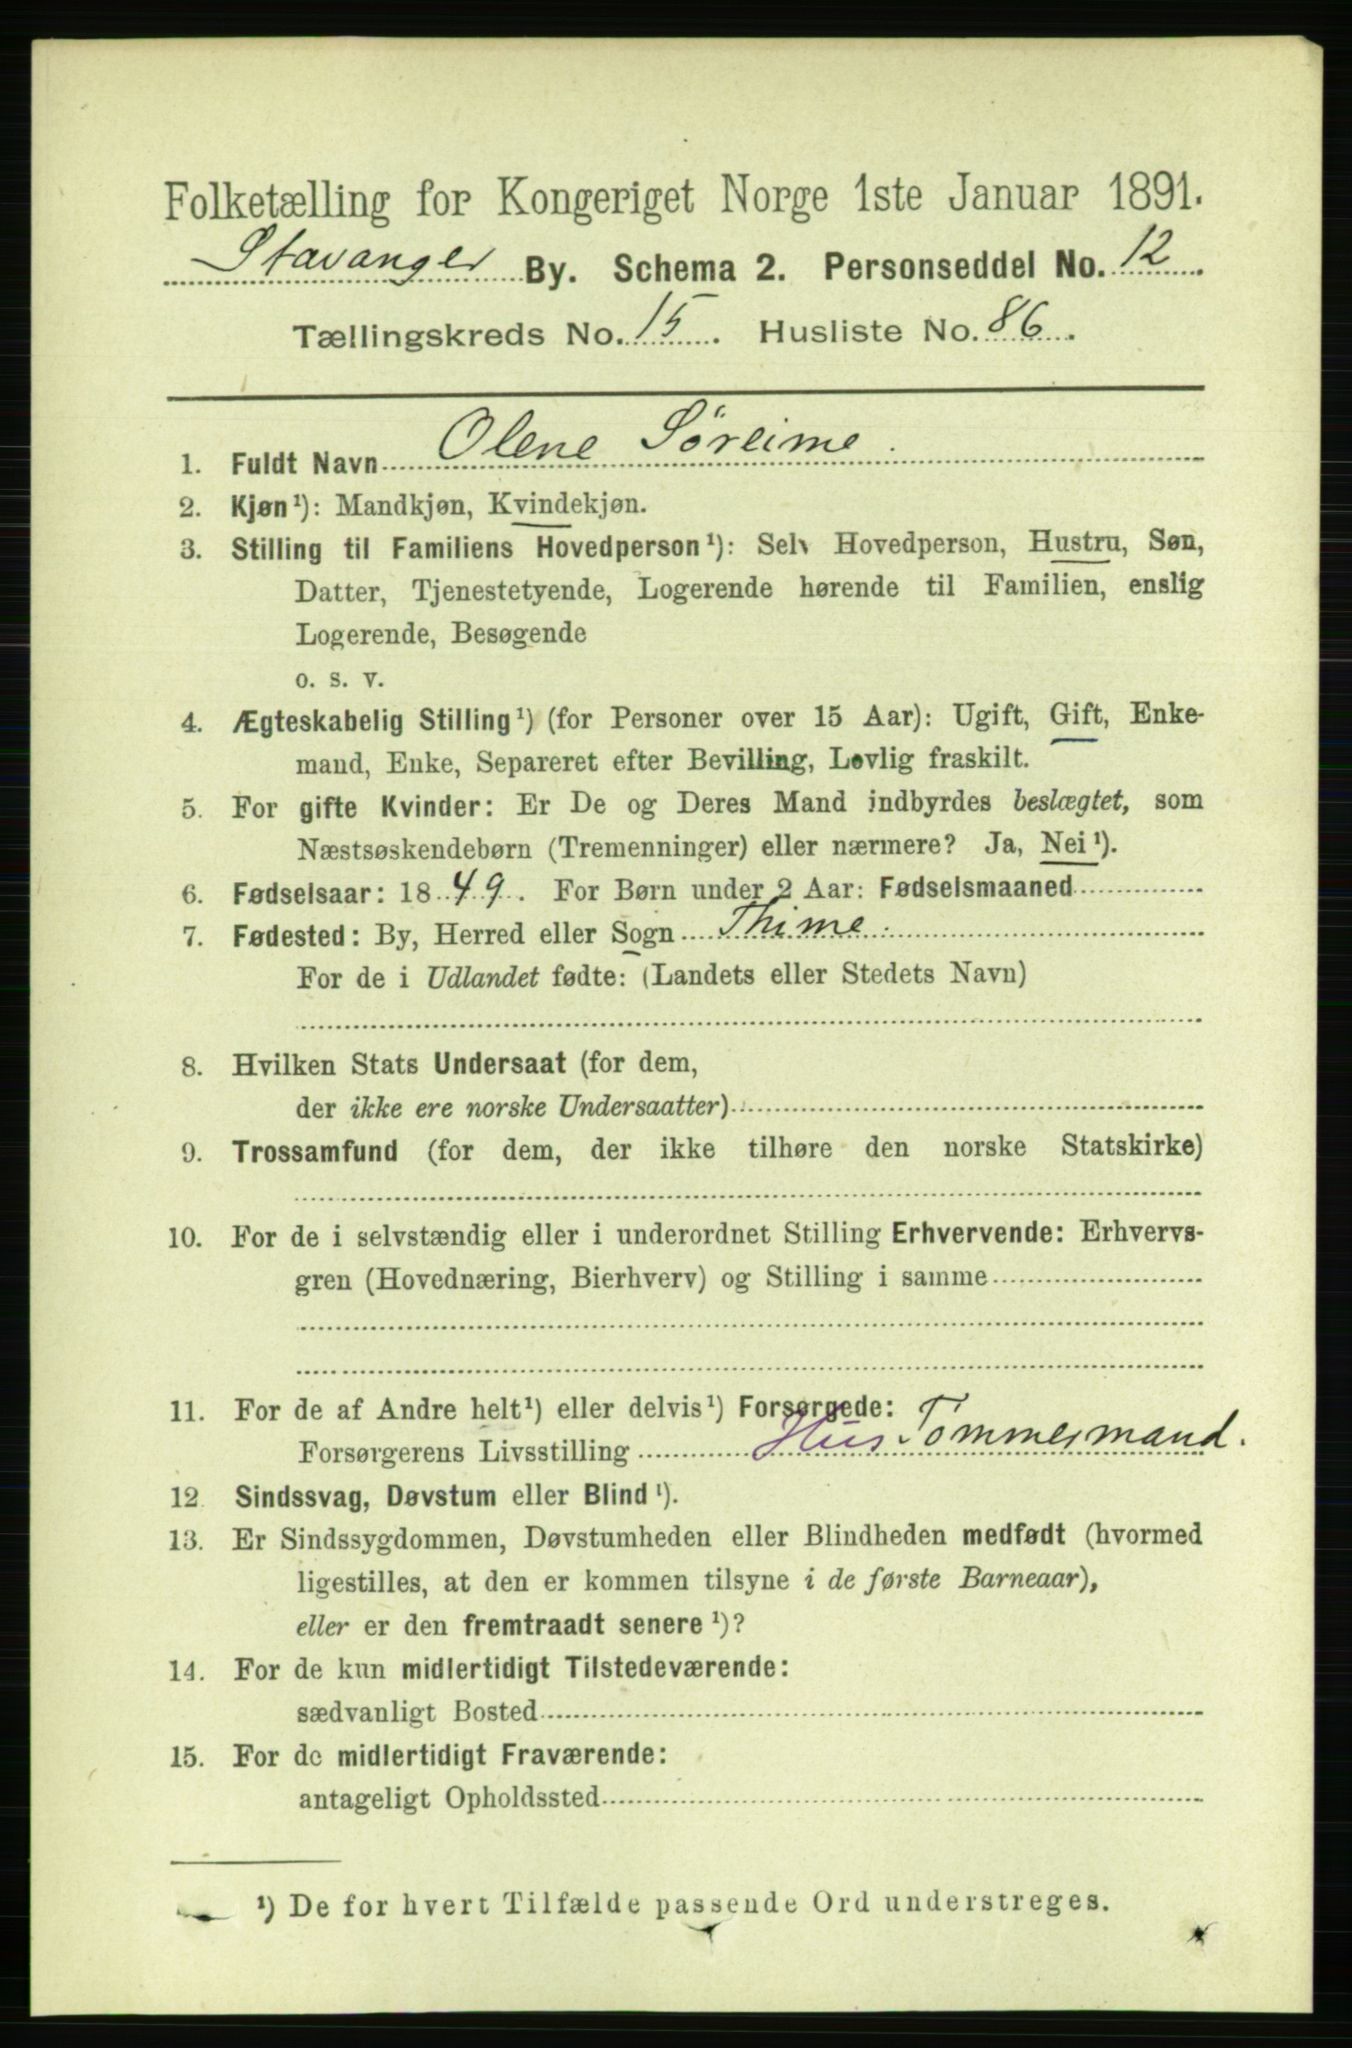 Folketælling for Kongeriget Norge 1ste Januar 1891.
Stavanger By. Schema 2. Personseddel No. 12.
Tællingskreds No. 15. Husliste No. 86.
1. Fuldt Navn Olene Søreime.
2. Kjøn¹): Mandkjøn, Kvindekjøn.
3. Stilling til Familiens Hovedperson¹): Selv Hovedperson, Hustru, Søn,
Datter, Tjenestetyende, Logerende hørende til Familien, enslig
Logerende, Besøgende
o. s. v.
4. Ægteskabelig Stilling¹) (for Personer over 15 Aar): Ugift, Gift, Enke-
mand, Enke, Separeret efter Bevilling, Lovlig fraskilt.
5. For gifte Kvinder: Er De og Deres Mand indbyrdes beslægtet, som
Næstsøskendebørn (Tremenninger) eller nærmere? Ja, Nei¹).
6. Fødselsaar: 1849. For Børn under 2 Aar: Fødselsmaaned
7. Fødested: By, Herred eller Sogn Thime.
For de i Udlandet fødte: (Landets eller Stedets Navn)
8. Hvilken Stats Undersaat (for dem,
der ikke ere norske Undersaatter)
9. Trossamfund (for dem, der ikke tilhøre den norske Statskirke)
10. For de i selvstændig eller i underordnet Stilling Erhvervende: Erhvervs-
gren (Hovednæring, Bierhverv) og Stilling i samme
11. For de af Andre helt¹) eller delvis¹) Forsørgede:
Forsørgerens Livsstilling Hus Tømmermand.
12. Sindssvag, Døvstum eller Blind¹).
13. Er Sindssygdommen, Døvstumheden eller Blindheden medfødt (hvormed
ligestilles, at den er kommen tilsyne i de første Barneaar),
eller er den fremtraadt senere¹)?
14. For de kun midlertidigt Tilstedeværende:
sædvanligt Bosted
15. For de midlertidigt Fraværende:
antageligt Opholdssted
¹) De for hvert Tilfælde passende Ord understreges.